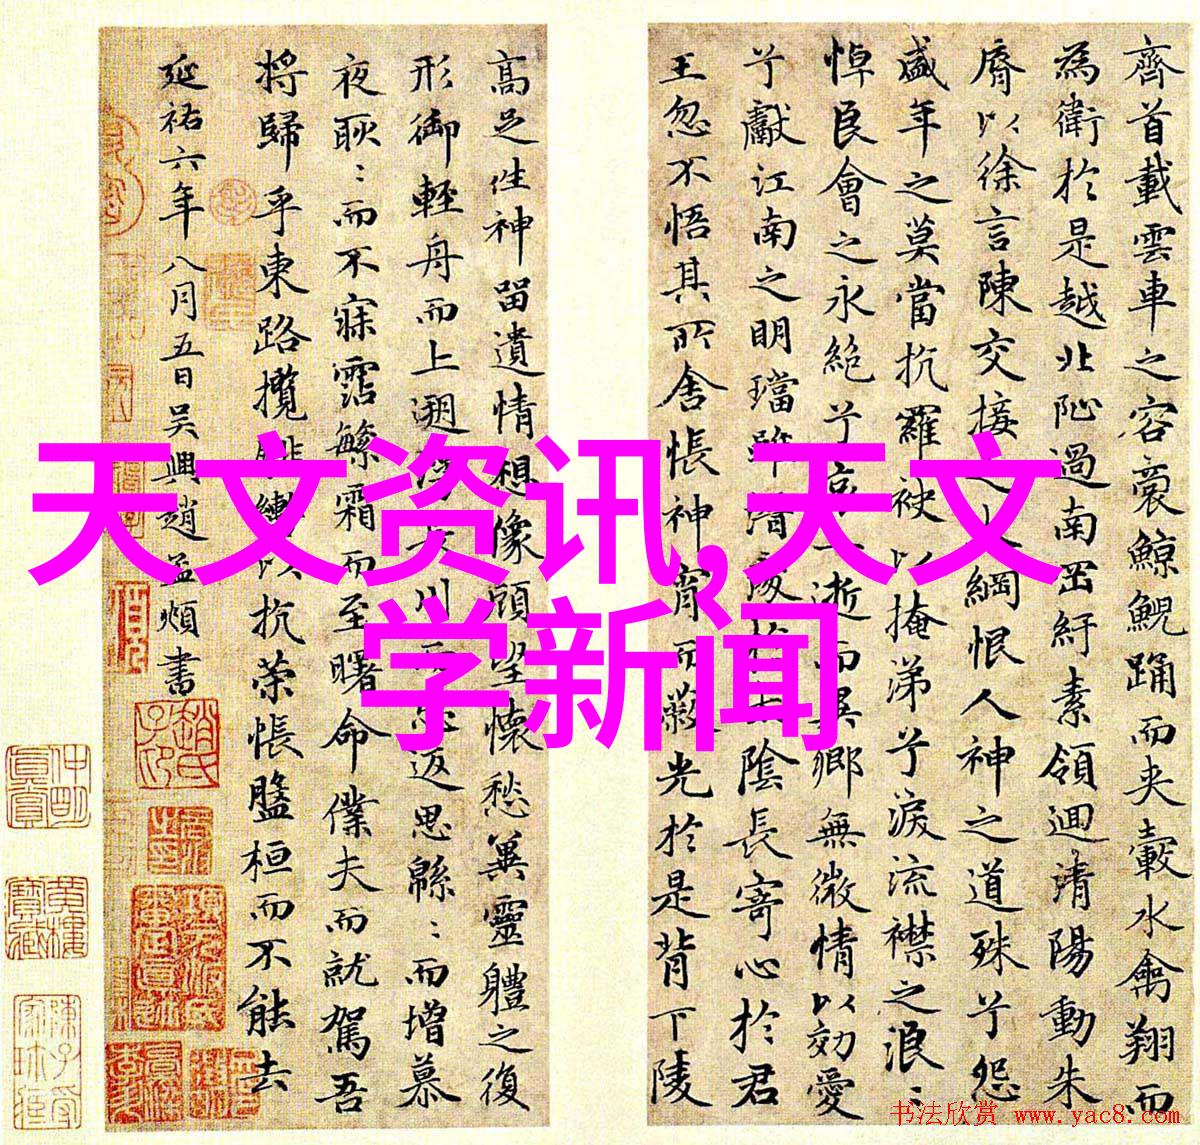 齊首載雲車之容裔鯨鯢踊而夾轂水禽翔而
為衛於是越北沚過南岡紆素領迴清陽動朱
脣以徐言陳交接之大綱恨人神之道殊兮怨
盛年之莫當抗羅袂以掩涕兮淚流襟之浪〻
悼良會之永絕兮哀一逝而異鄉無微情以効愛
兮獻江南之明璫雖潛處於太陰長寄心於君
王忽不悟其所舍悵神宵而蔽光於是背下陵
高足往神留遺情想像顧望懷愁冀靈體之復
形御輕舟而上遡浮長川而忘返思緜〻而增慕
夜耿〻而不寐霑繁霜而至曙命僕夫而就駕吾
將歸乎東路攬騑轡以抗策悵盤桓而不能去
延祐六年八月五日吳興趙孟頫書
天文资讯,天文
学新闻
书法欣赏 www.yac8.com